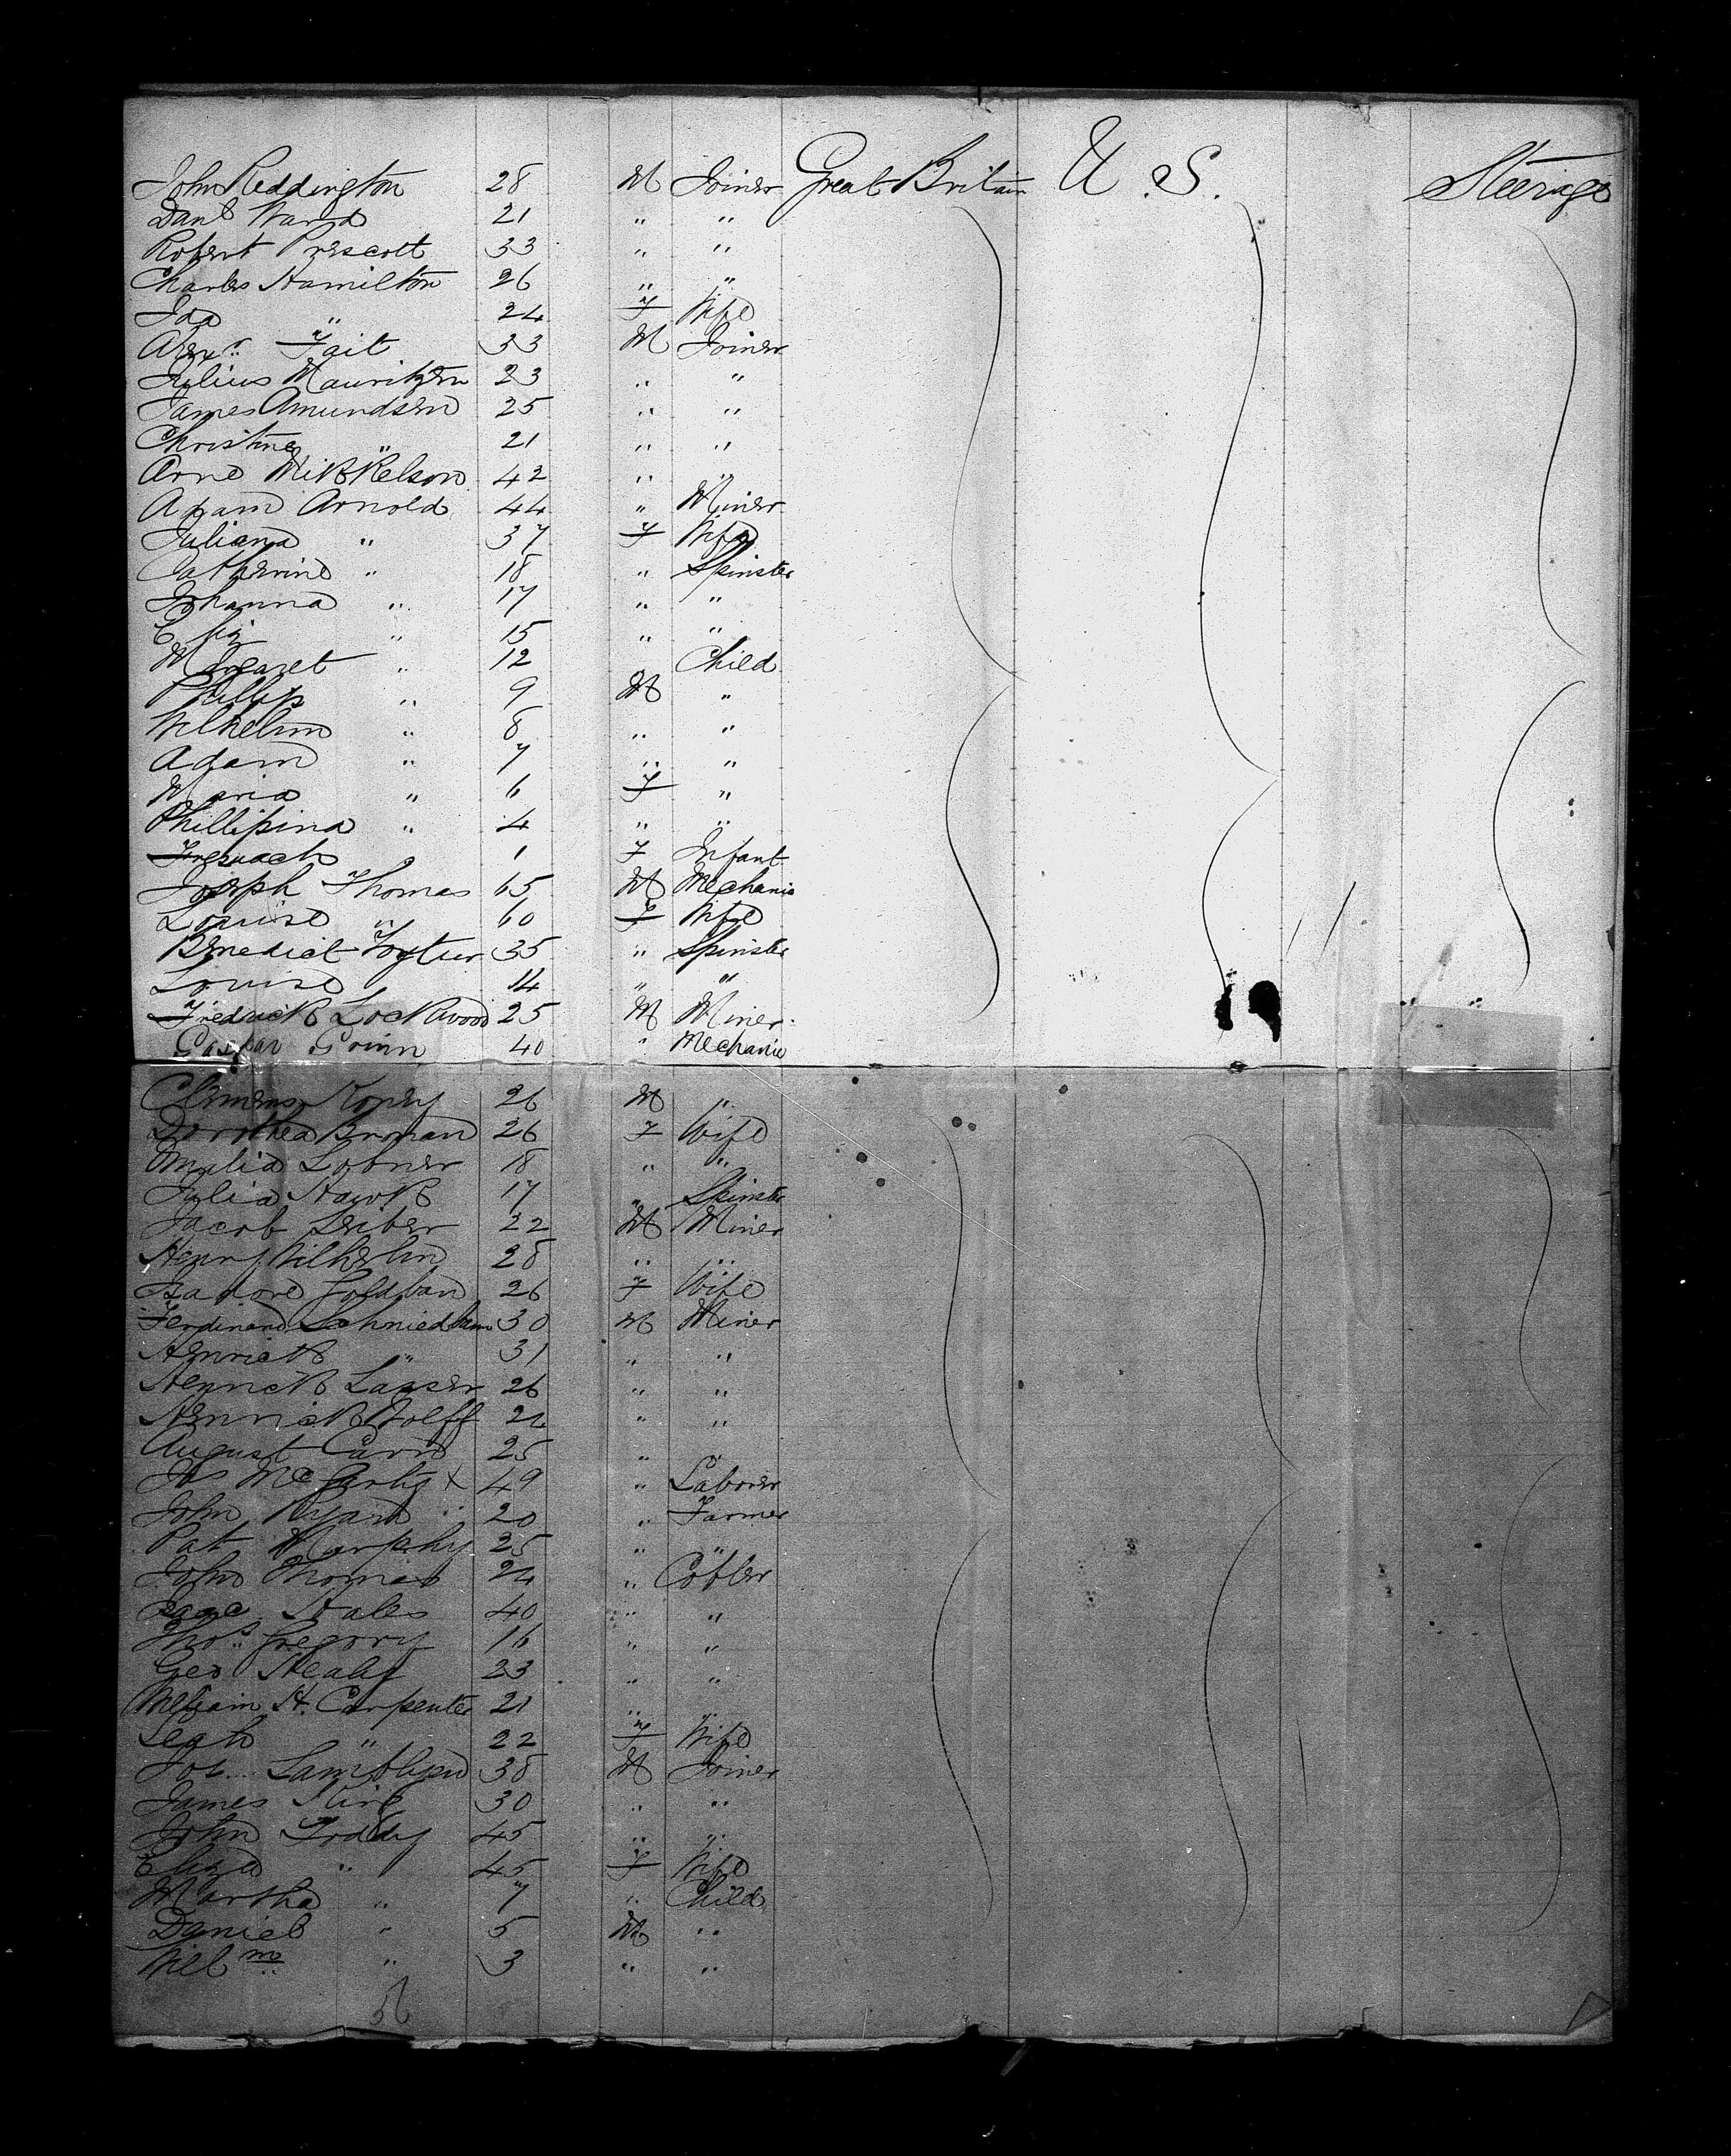 John Reddington 28 M Joiner Great Britain U.S. Steerage
Danl Ward 21 " "
Robert Prescott 33 " "
Charles Hamilton 26 " "
Ida " 24 F Wife
Alexr Tait 33 M Joiner
Julius Mauritzen 23 " "
James Amundsen 25 " "
Christine " 21 " "
Arne Mikkelson 42 " "
Adam Arnold 44 " Miner
Juliana " 37 F Wife
Catherine " 18 " Spinster
Johanna " 17 " "
" 15 " "
Margaret " 12 Child
Phillip " 9 M "
Wilhelm " 8 " "
Adam " 7 " "
Maria " 6 F "
Phillipina " 4 " "
1 F Infant
Joseph Thomas 65 M Mechanic
Louise " 60 F Wife
Benedict 35 " Spinster
Louise 14 " "
Fredrick Lockwood 25 M Miner
Caspar Grinn 40 " Mechanic
Clemens 26 M "
Dorothea Broman 26 F Wife
Amelia Lobner 18 " "
Julia Hawk 17 " Spinster
Jacob Leiber 22 M Miner
Henry Wilhelm 28 " "
Isadore 26 F Wife
Ferdinand 30 M Miner
Henrick " 31 " "
Henrick Lasser 26 " "
Henrick Wolff 24 " "
August 25 " "
Jas McCarty x 49 " Laborer
John Ryan 20 " Farmer
Pat Murphy 25 " "
John Thomas 24 " Cobler
Isaac Hales 40 " "
Thos Gregory 16 " "
Geo Healy 23 " "
William H. Carpenter 21 " "
Leah " 22 F Wife
38 M Joiner
James Kirk 30 " "
John Troddy 45 " "
Eliza " 45 F Wife
Martha " 7 " Child
Daniel " 5 M "
Willm " 3 " "
56